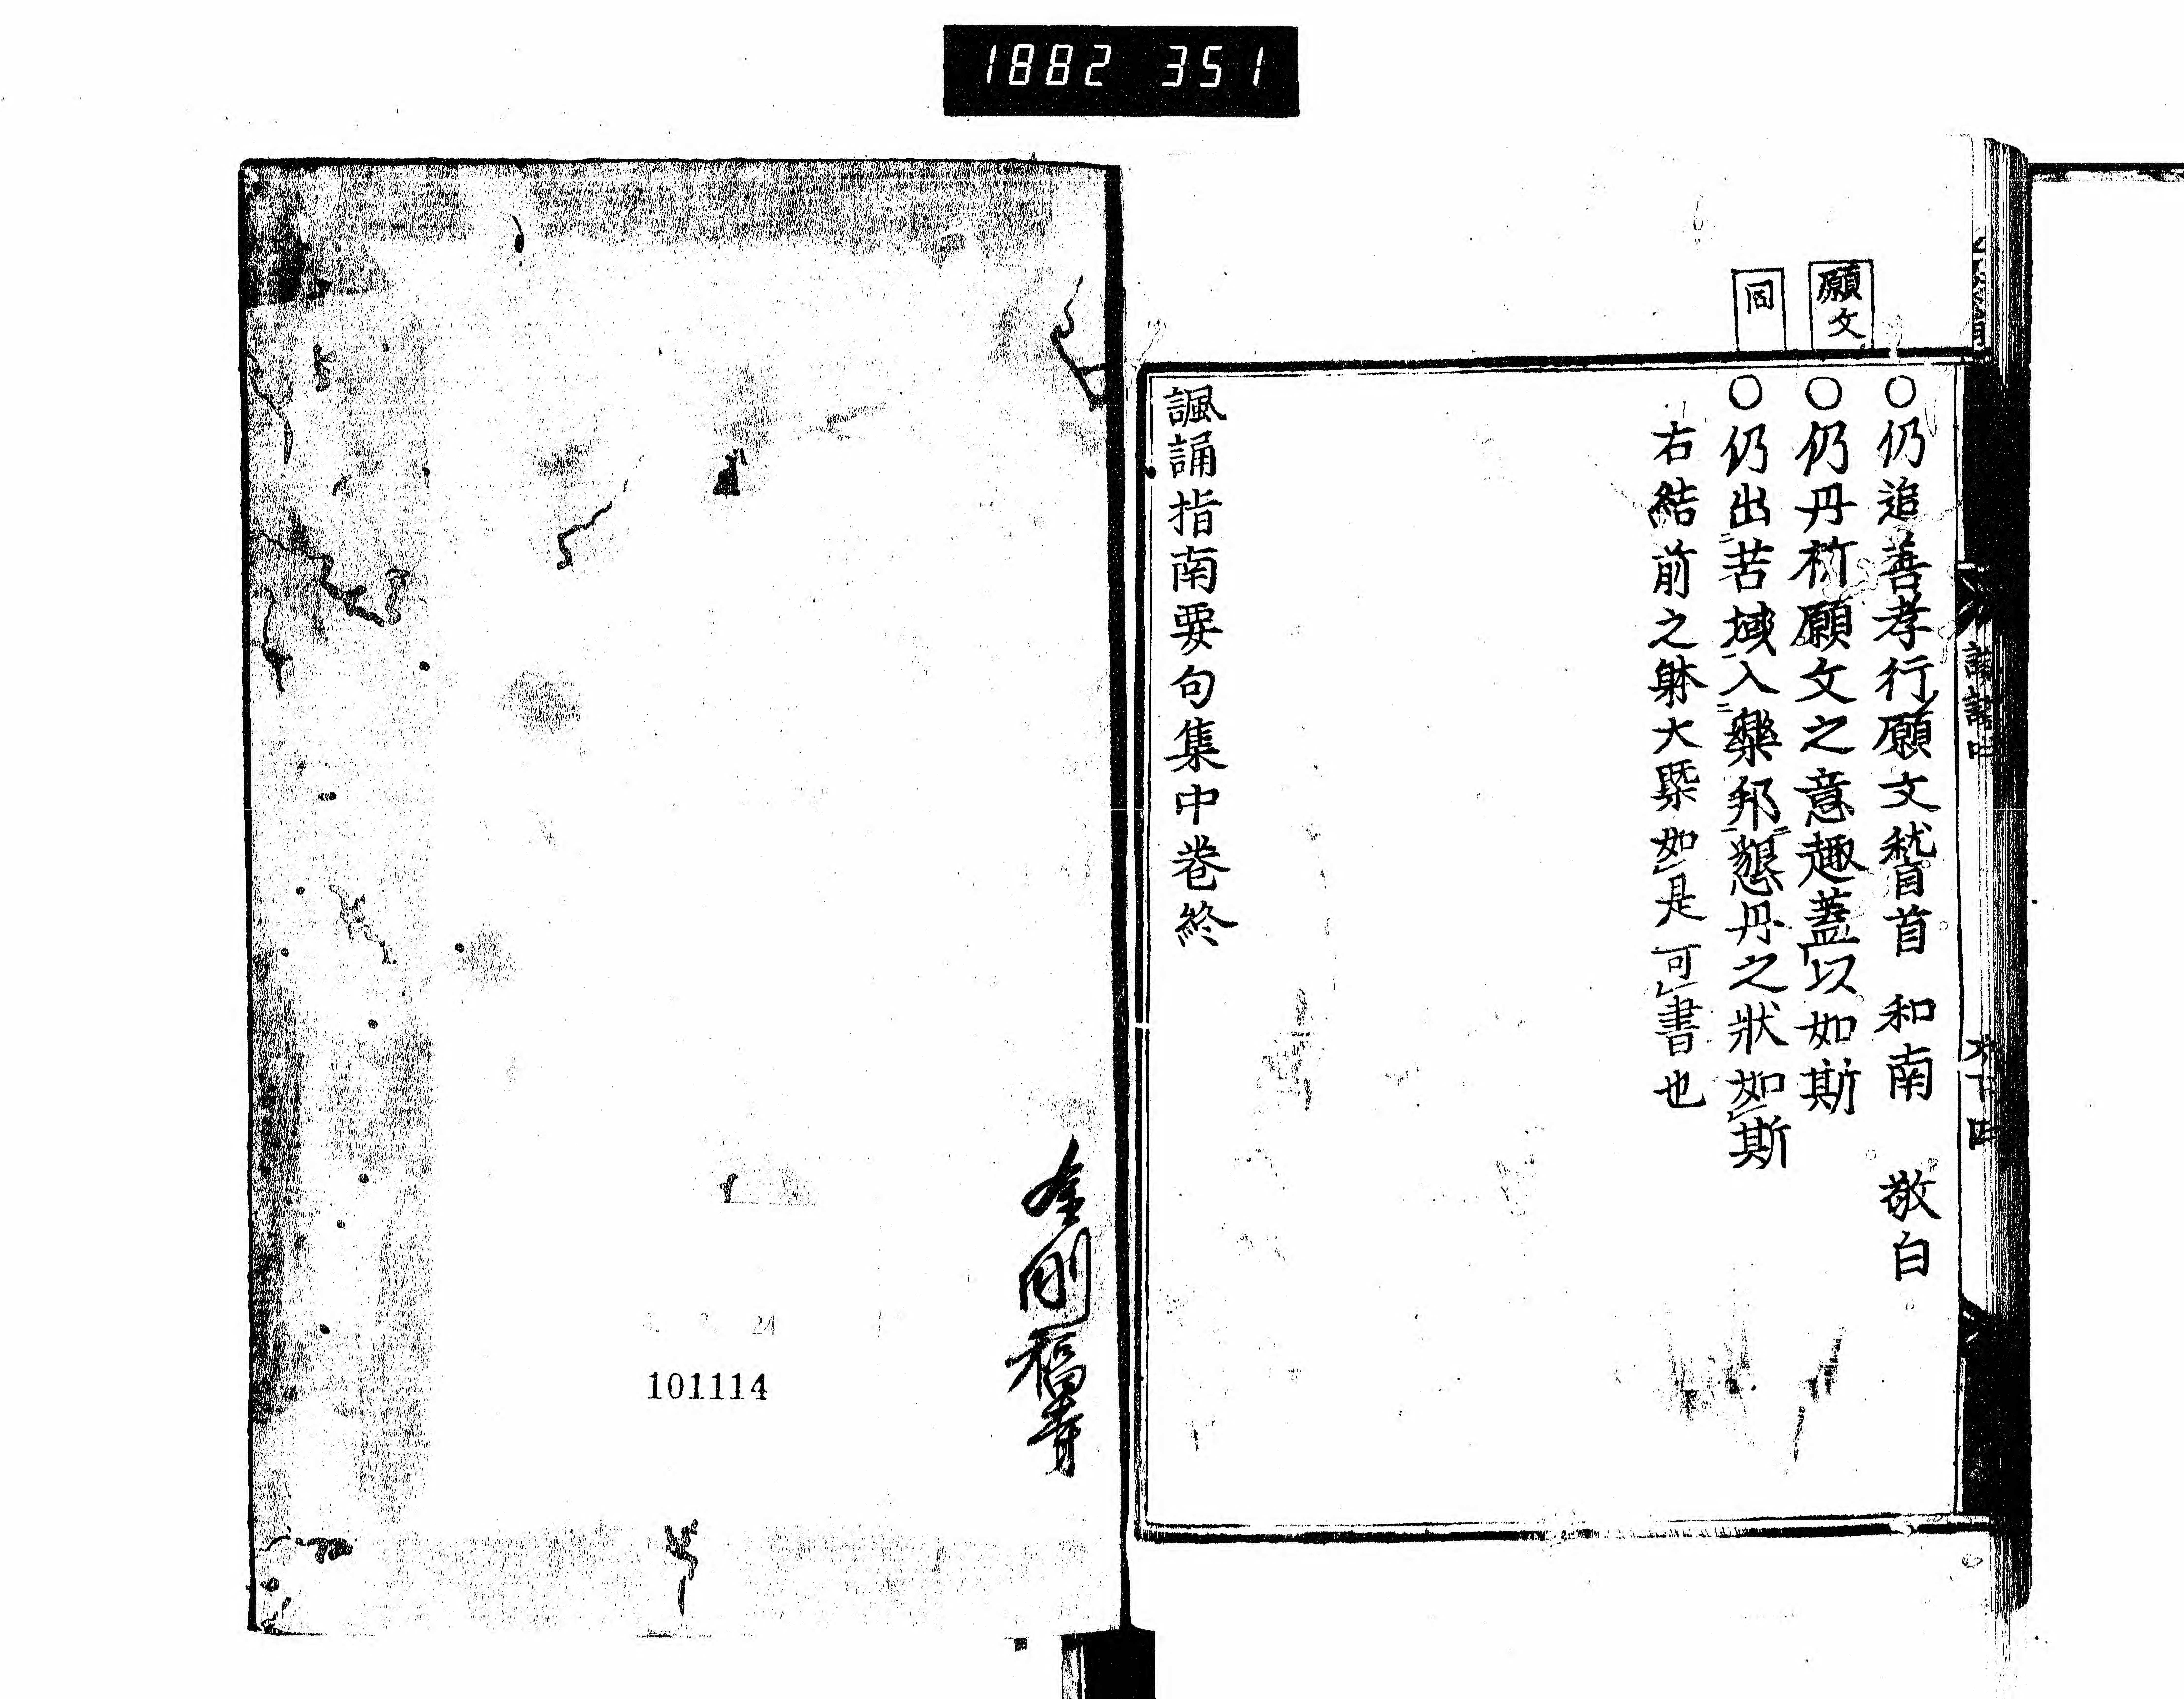 1882 351
願文
同
○仍追善孝行願文稽首 和南 敬白
○仍丹祈願文之意趣蓋以如斯
○仍出苦域入樂邦懇丹之狀如斯
右結前之躰大槩如是可書也
諷誦指南要句集中巻終
金剛福寺
24
101114